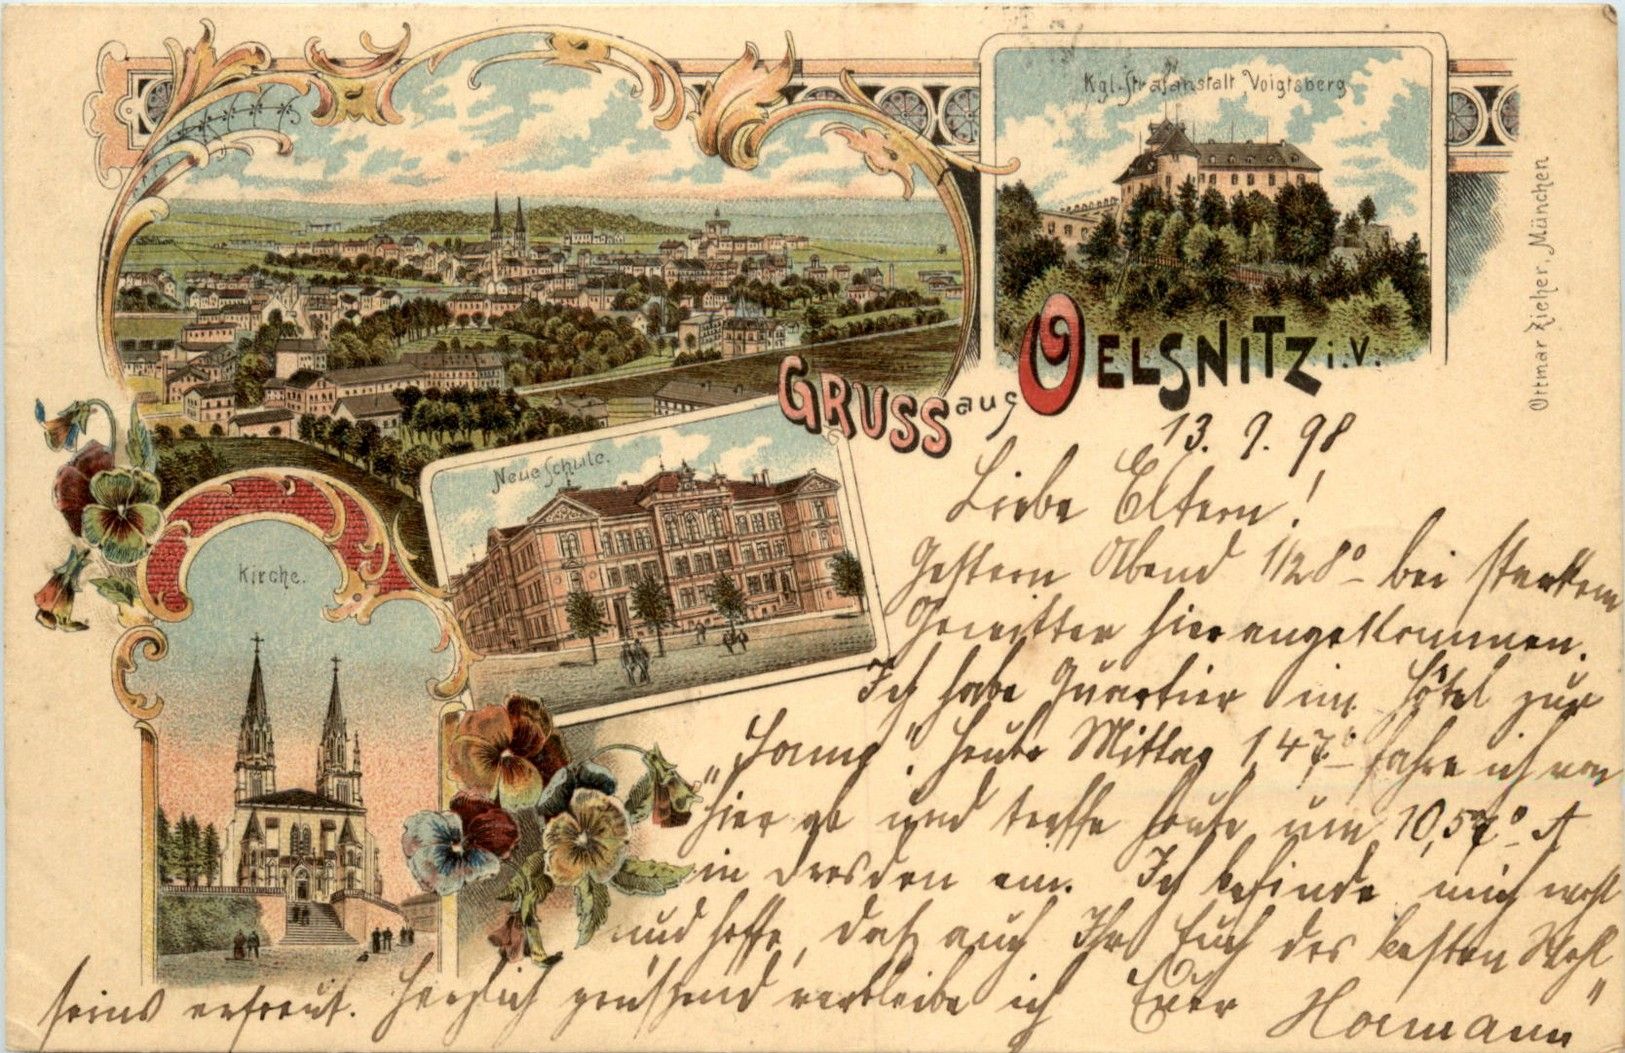 Kgl. Strafanstalt Voigtsberg
Ottmar Zieher, München
GRUSS aus OELSNITZ i. V.
Neue Schule.
Kirche.
13. 9. 98
Liebe Eltern!
Gestern Abend 1/2 8° bei starkem
Gewitter hier angekommen.
Ich habe Quartier im Hôtel zur
"Sonne". Heute Mittag 1,47° fahre ich von
hier ab und treffe heute um 10,57° A
in Dresden ein. Ich befinde mich wohl
und hoffe, daß auch Ihr Euch des besten Wohl
seins erfreut. Herzlich grüßend verbleibe ich Euer
Hermann